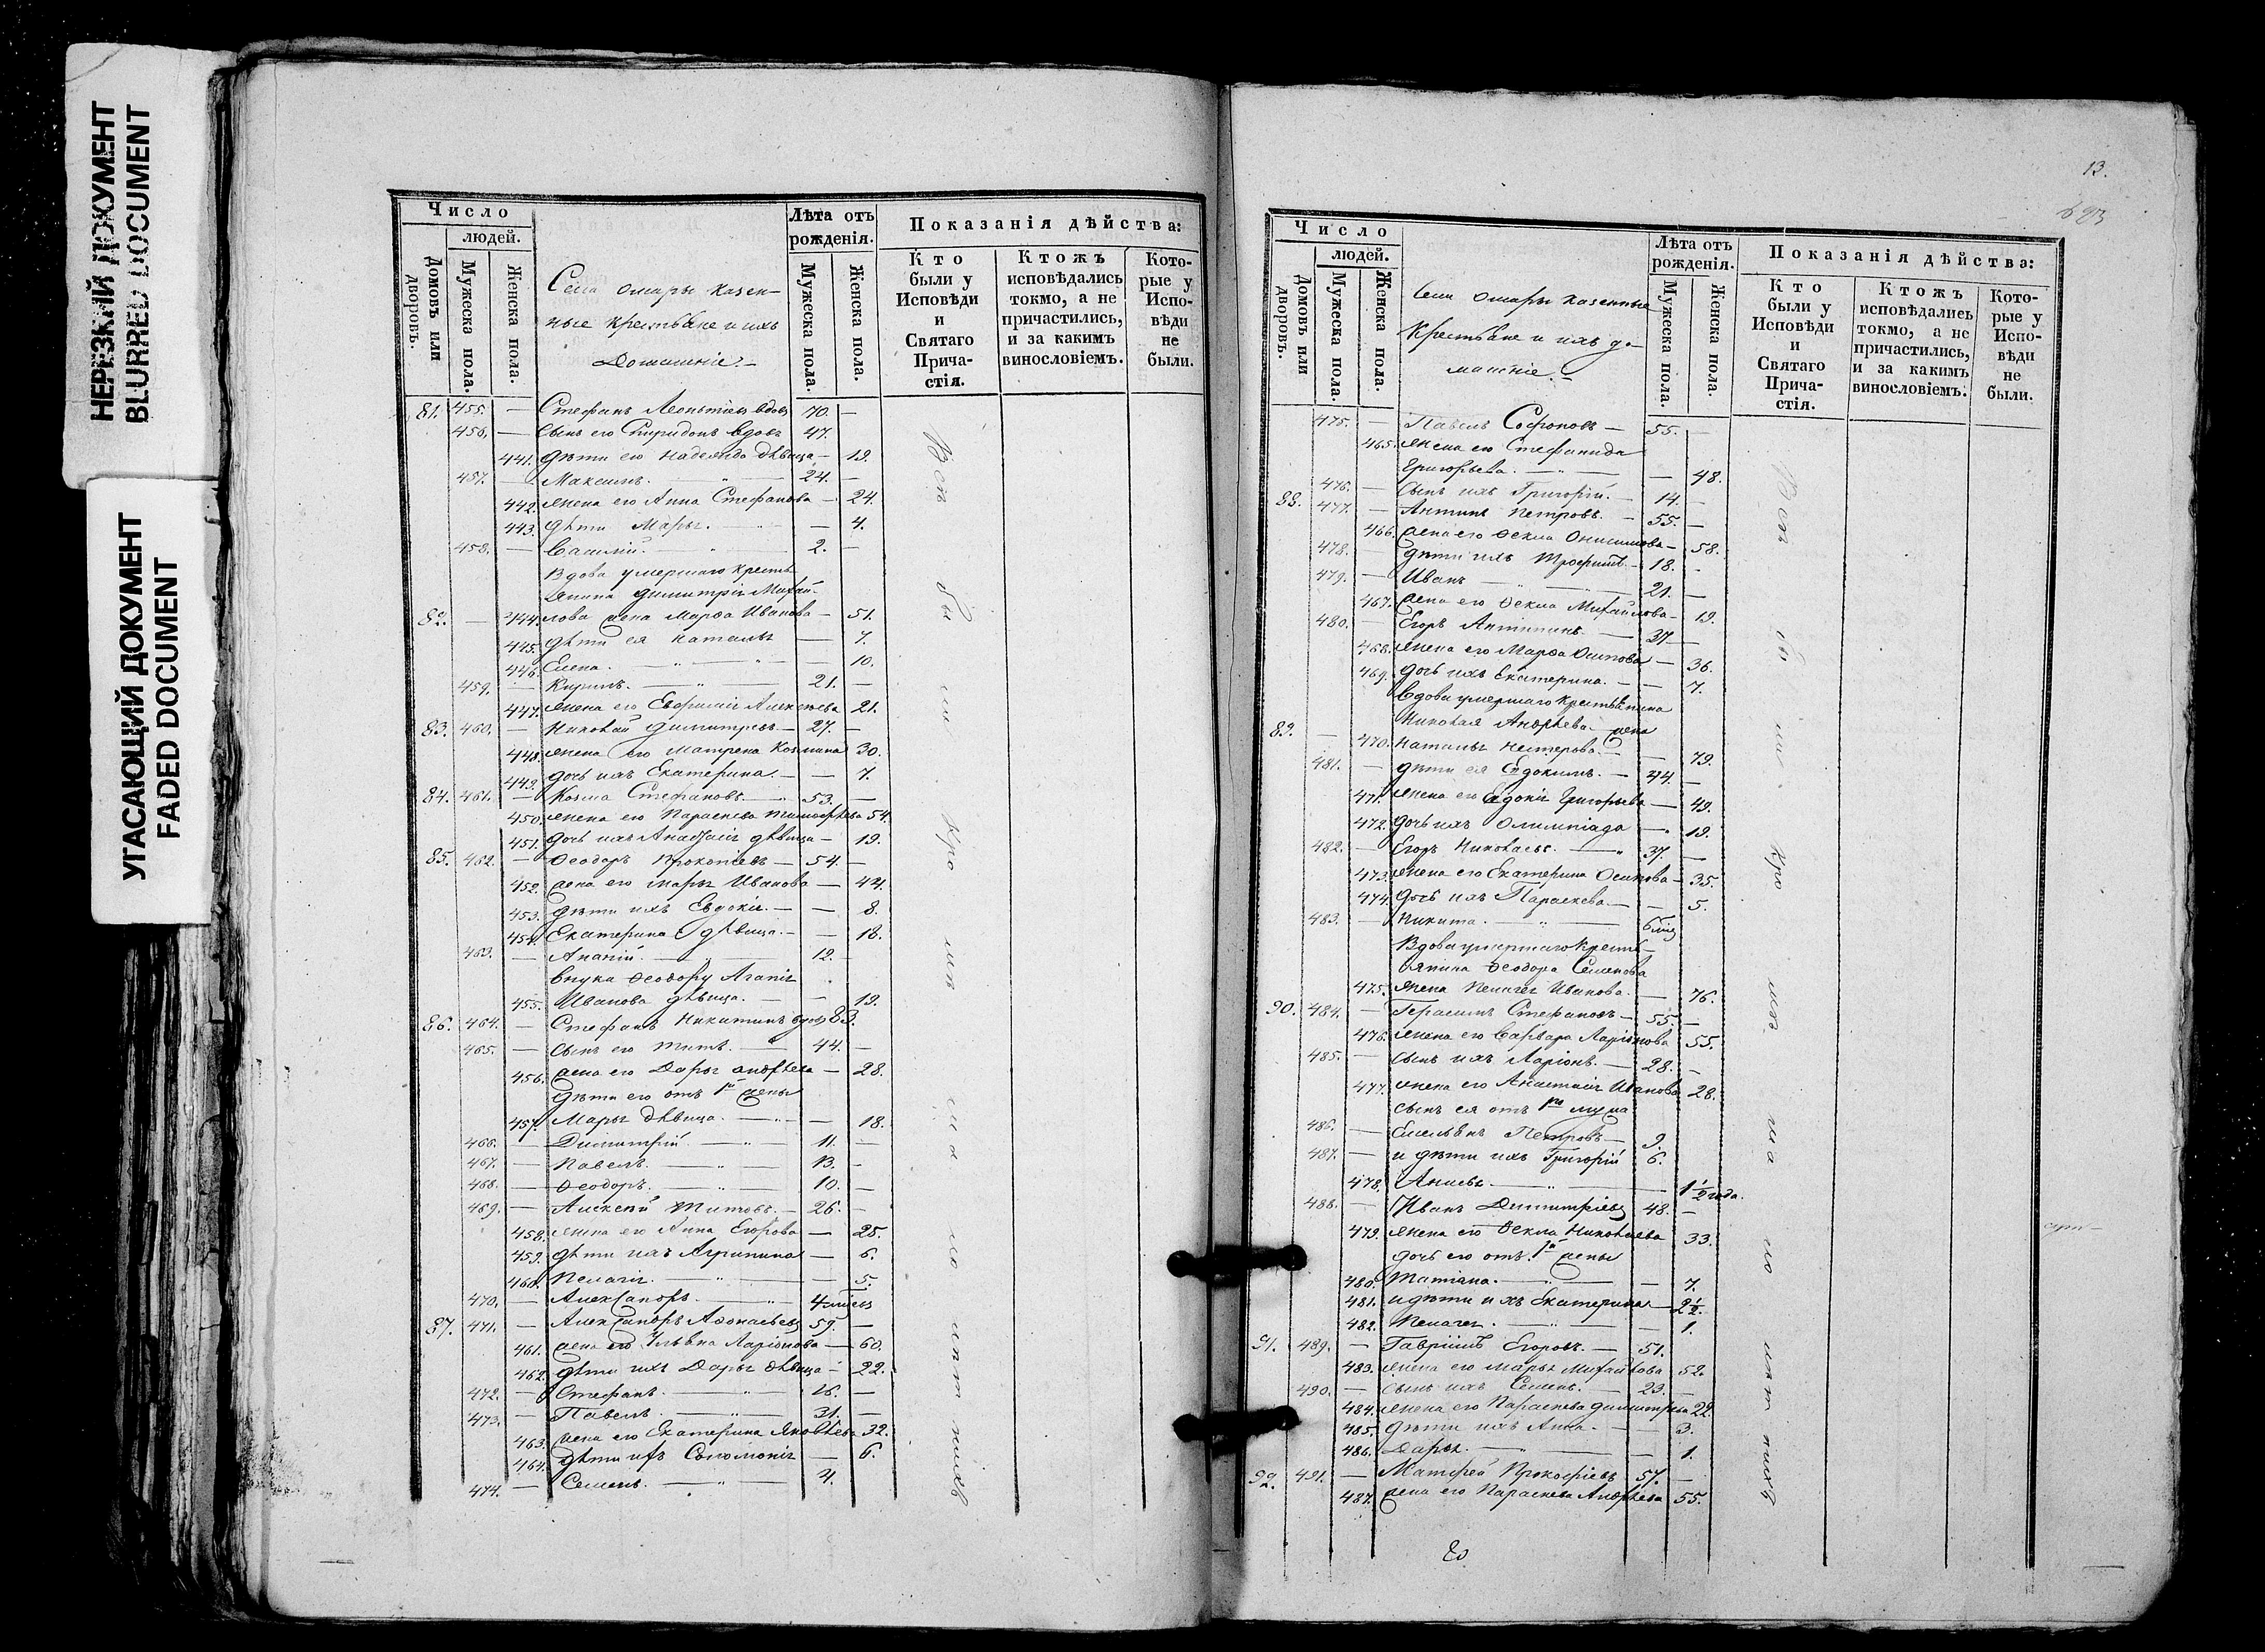 НЕРЕЗКИЙ ДОКУМЕНТ
BLURRED DOCUMENT
УГАСАЮЩИЙ ДОКУМЕНТ
FADED DOCUMENT
Число
людей.
Домовъ или дворовъ.
Мужеска пола.
Женска пола.
Села Омары казен-
ные крестьяне и ихъ
Домашніе.
Лѣта отъ рожденія.
Мужеска пола.
Женска пола.
Показанія дѣйства:
Кто были у Исповѣди и Святаго Прича-стія.
Ктожъ исповѣдались токмо, а не причастились, и за какимъ винословіемъ.
Кото-рые у Испо-вѣди не были.
81. 455. — Стефанъ Леонтіевъ вдовъ 70. —
456. — Сынъ его Спиридонъ вдовъ 47.
441. дѣти его Надежда дѣвица — 19.
457. — Максимъ. 24. —
442. жена его Анна Стефанова — 24.
443. дѣти Марья. — 4.
458. — Василій. 2. —
Вдова умершаго кресть-
янина Димитрія Михай-
82. — 444. лова жена Марѳа Иванова — 51.
445. дѣти ея Наталья — 7.
446. Елена. — 10.
459. — Кирилъ. 21. —
447. жена его Евфимія Алексѣева 21.
83. 460. — Николай Димитріевъ — 27. —
448. жена его Матрена Козмина 30.
449. дочь ихъ Екатерина. — 7.
84. 461. — Козма Стефановъ. 53. —
450. жена его Параскева Тимоѳеева 54.
451. дочь ихъ Анастасія дѣвица — 19.
85. 462. — Ѳеодоръ Прокопіевъ — 54. —
452. жена его Марья Иванова — 44.
453. дѣти ихъ Евдокія. — 8.
454. Екатерина дѣвица. — 18.
463. — Ананій. 12. —
внука Ѳеодору Агапія
455. Иванова дѣвица. — 19.
86. 464. — Стефанъ Никитинъ вдовъ 83.
465. — Сынъ его Титъ. 44. —
456. жена его Дарья Андреева — 28.
Дѣти его отъ 1й жены
457. Марья дѣвица. — 18.
466. — Димитрій 11. —
467. — Павелъ. 13. —
468. — Ѳеодоръ. 10. —
469. — Алексѣй Титовъ. — 26. —
458. жена его Анна Егорова — 25.
459. дѣти ихъ Агрипина — 6.
460. Пелагія. — 5.
470. — Александръ. 4 мѣсяц
87. 471. — Александръ Аѳонасьевъ 59. —
461. жена его Ульяна Ларіонова — 60.
462. дѣти ихъ Дарья дѣвица — 22.
472. — Стефанъ. 16. —
473. — Павелъ. 31. —
463. жена его Екатерина Яковлева 32.
464. дѣти ихъ Соломонія — 6.
474. — Семенъ. 4.
13.
Число
людей.
Домовъ или дворовъ.
Мужеска пола.
Женска пола.
Села Омары казенные
Крестьяне и ихъ до-
машніе.
Лѣта отъ рожденія.
Мужеска пола.
Женска пола.
Показанія дѣйства:
Кто были у Исповѣди и Святаго Прича-стія.
Ктожъ исповѣдались токмо, а не причастились, и за какимъ винословіемъ.
Кото-рые у Испо-вѣди не были.
475. — Павелъ Софроновъ — 55. —
465. жена его Стефанида
Григорьева. — 48.
476. — Сынъ ихъ Григорій. — 14. —
88. 477. — Антипъ Петровъ. — 55. —
466. жена его Ѳекла Онисимова — 58.
478. — дѣти ихъ Трофимъ. — 18. —
479. — Иванъ 21. —
467. жена его Ѳекла Михайлова — 19.
480. — Егоръ Антипинъ. — 37 —
468. жена его Марѳа Осипова — 36.
469. дочь ихъ Екатерина. — 7.
Вдова умершаго крестьянина
Николая Андреева жена
89. — 470. Наталья Нестерова. — 79.
481. — дѣти ея Евдокимъ. — 44. —
471. жена его Евдокія Григорьева — 49.
472. дочь ихъ Олимпіада — 19.
482. — Егоръ Николаевъ. 37. —
473. жена его Екатерина Осипова — 35.
474. дочь ихъ Параскева — 5.
483. — Никита. 6 мѣс
Вдова умершаго кресть-
янина Ѳеодора Семенова
475. жена Пелагея Иванова. — 76.
90. 484. — Герасимъ Стефановъ — 55. —
476. жена его Варвара Ларіонова 55.
485. — сынъ ихъ Ларіонъ. — 28. —
477. жена его Анастасія Иванова 28.
сынъ ея отъ 1го мужа
486. — Емельянъ Петровъ — 9.
487. — и дѣти ихъ Григорій 6.
478. Анисья. 1 1/2 года.
488. — Иванъ Димитріевъ 48. —
479. жена его Ѳекла Николаева 33.
дочь его отъ 1й жены
480. Татіана. — 7.
481. и дѣти ихъ Екатерина — 2 1/2.
482. Пелагея. — 1.
91. 489. — Гавріилъ Егоровъ. — 51.
483. жена его Марья Михайлова 52.
490. — сынъ ихъ Семенъ. — 23. —
484. жена его Параскева Димитріева 22.
485. дѣти ихъ Анна. — 3.
486. Дарья. — 1.
92. 491. — Матфей Прокофіевъ 57. —
487. жена его Параскева Андреева 55.